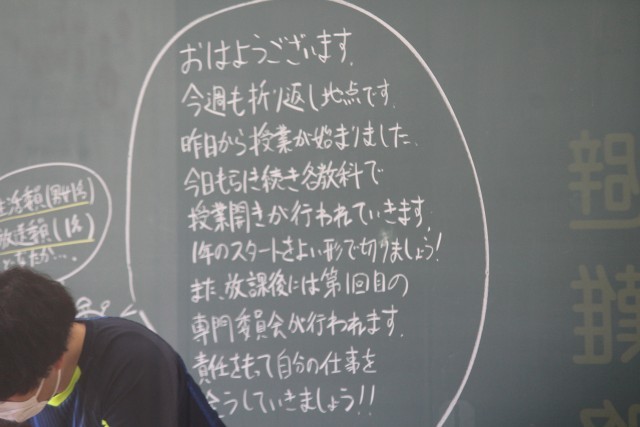 おはようございます.
今週も折り返し地点です.
昨日から授業が始まりました.
今日も引き続き各教科で
授業開きが行われていきます.
1年のスタートをよい形で切りましょう!
また、放課後には第1回目の
専門委員会が行われます.
責任をもって自分の仕事を
うしていきましょう!!
生活額(男女1名)
放送額(1名)
避難